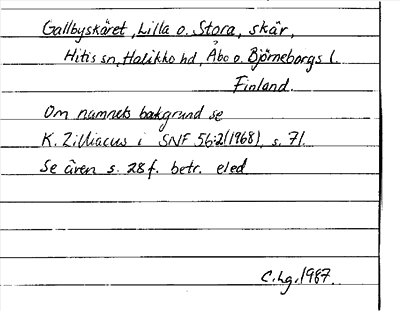 Gallbyskäret, Lilla o. Stora, skär,
Hitis sn, Halikko hd, Åbo o. Björneborgs l.
Finland.
Om namnets bakgrund se
K. Zilliacus i SNF 56:2 (1968), s. 71.
Se även s. 28 f. betr. eled
C.hg. 1987.